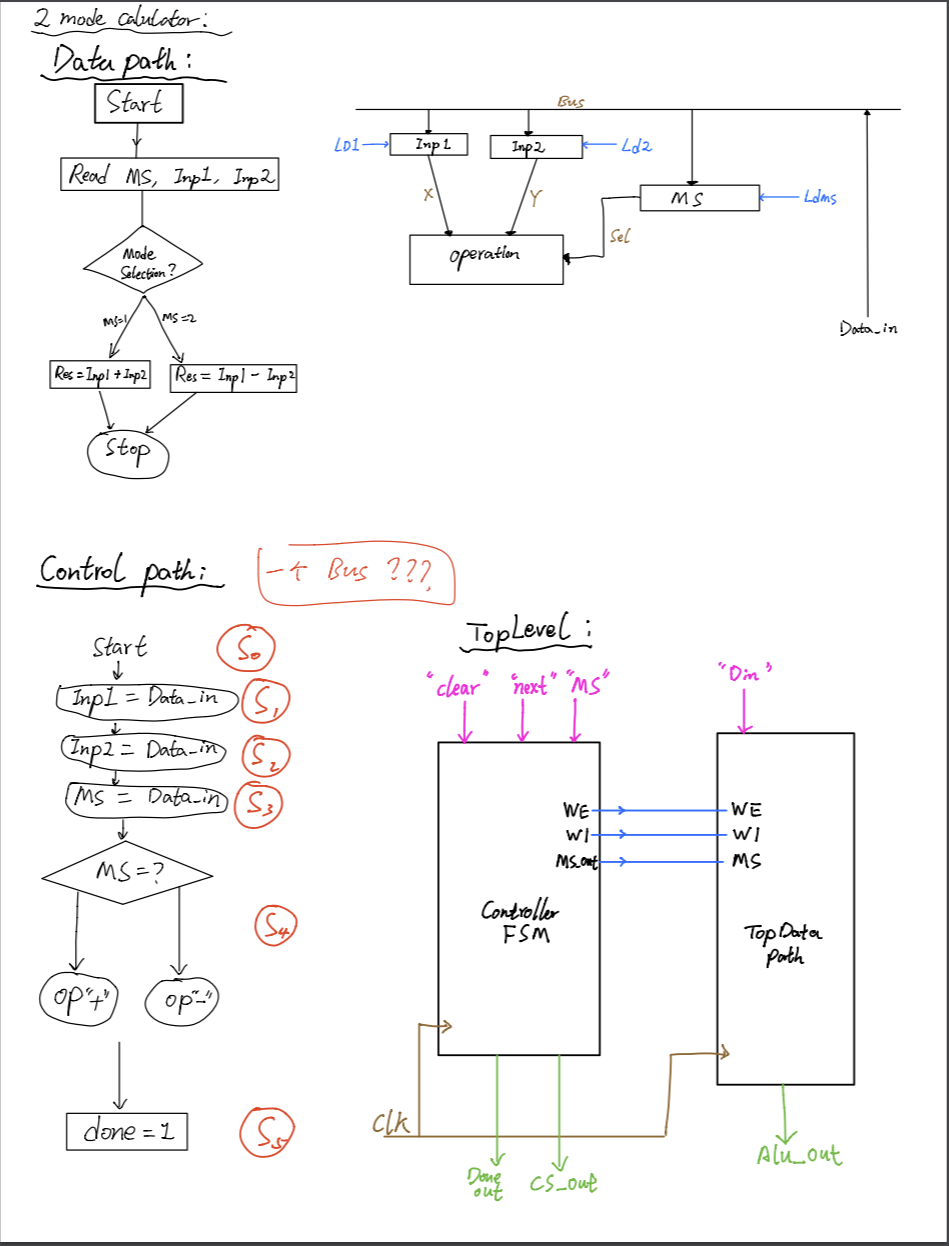 2 mode calulator:
Data path:
Start
Read MS, Inp1, Inp2
Mode
Selection?
MS=1
MS=2
Res=Inp1+Inp2
Res= Inp1 - Inp2
Stop
Bus
LD1
Inp1
Inp2
Ld2
X
Y
MS
Ldms
Sel
operation
Data_in
Control path:
一个 Bus ???
Start
S0
Inp1 = Data_in
S1
Inp2 = Data_in
S2
MS = Data_in
S3
MS=?
S4
op"+"
op"-"
done = 1
S5
Top Level:
"clear"
"next"
"MS"
"Din"
WE
WE
WI
WI
MS_out
MS
Controller
FSM
Top Data
path
Clk
Done
out
CS_out
Alu_out